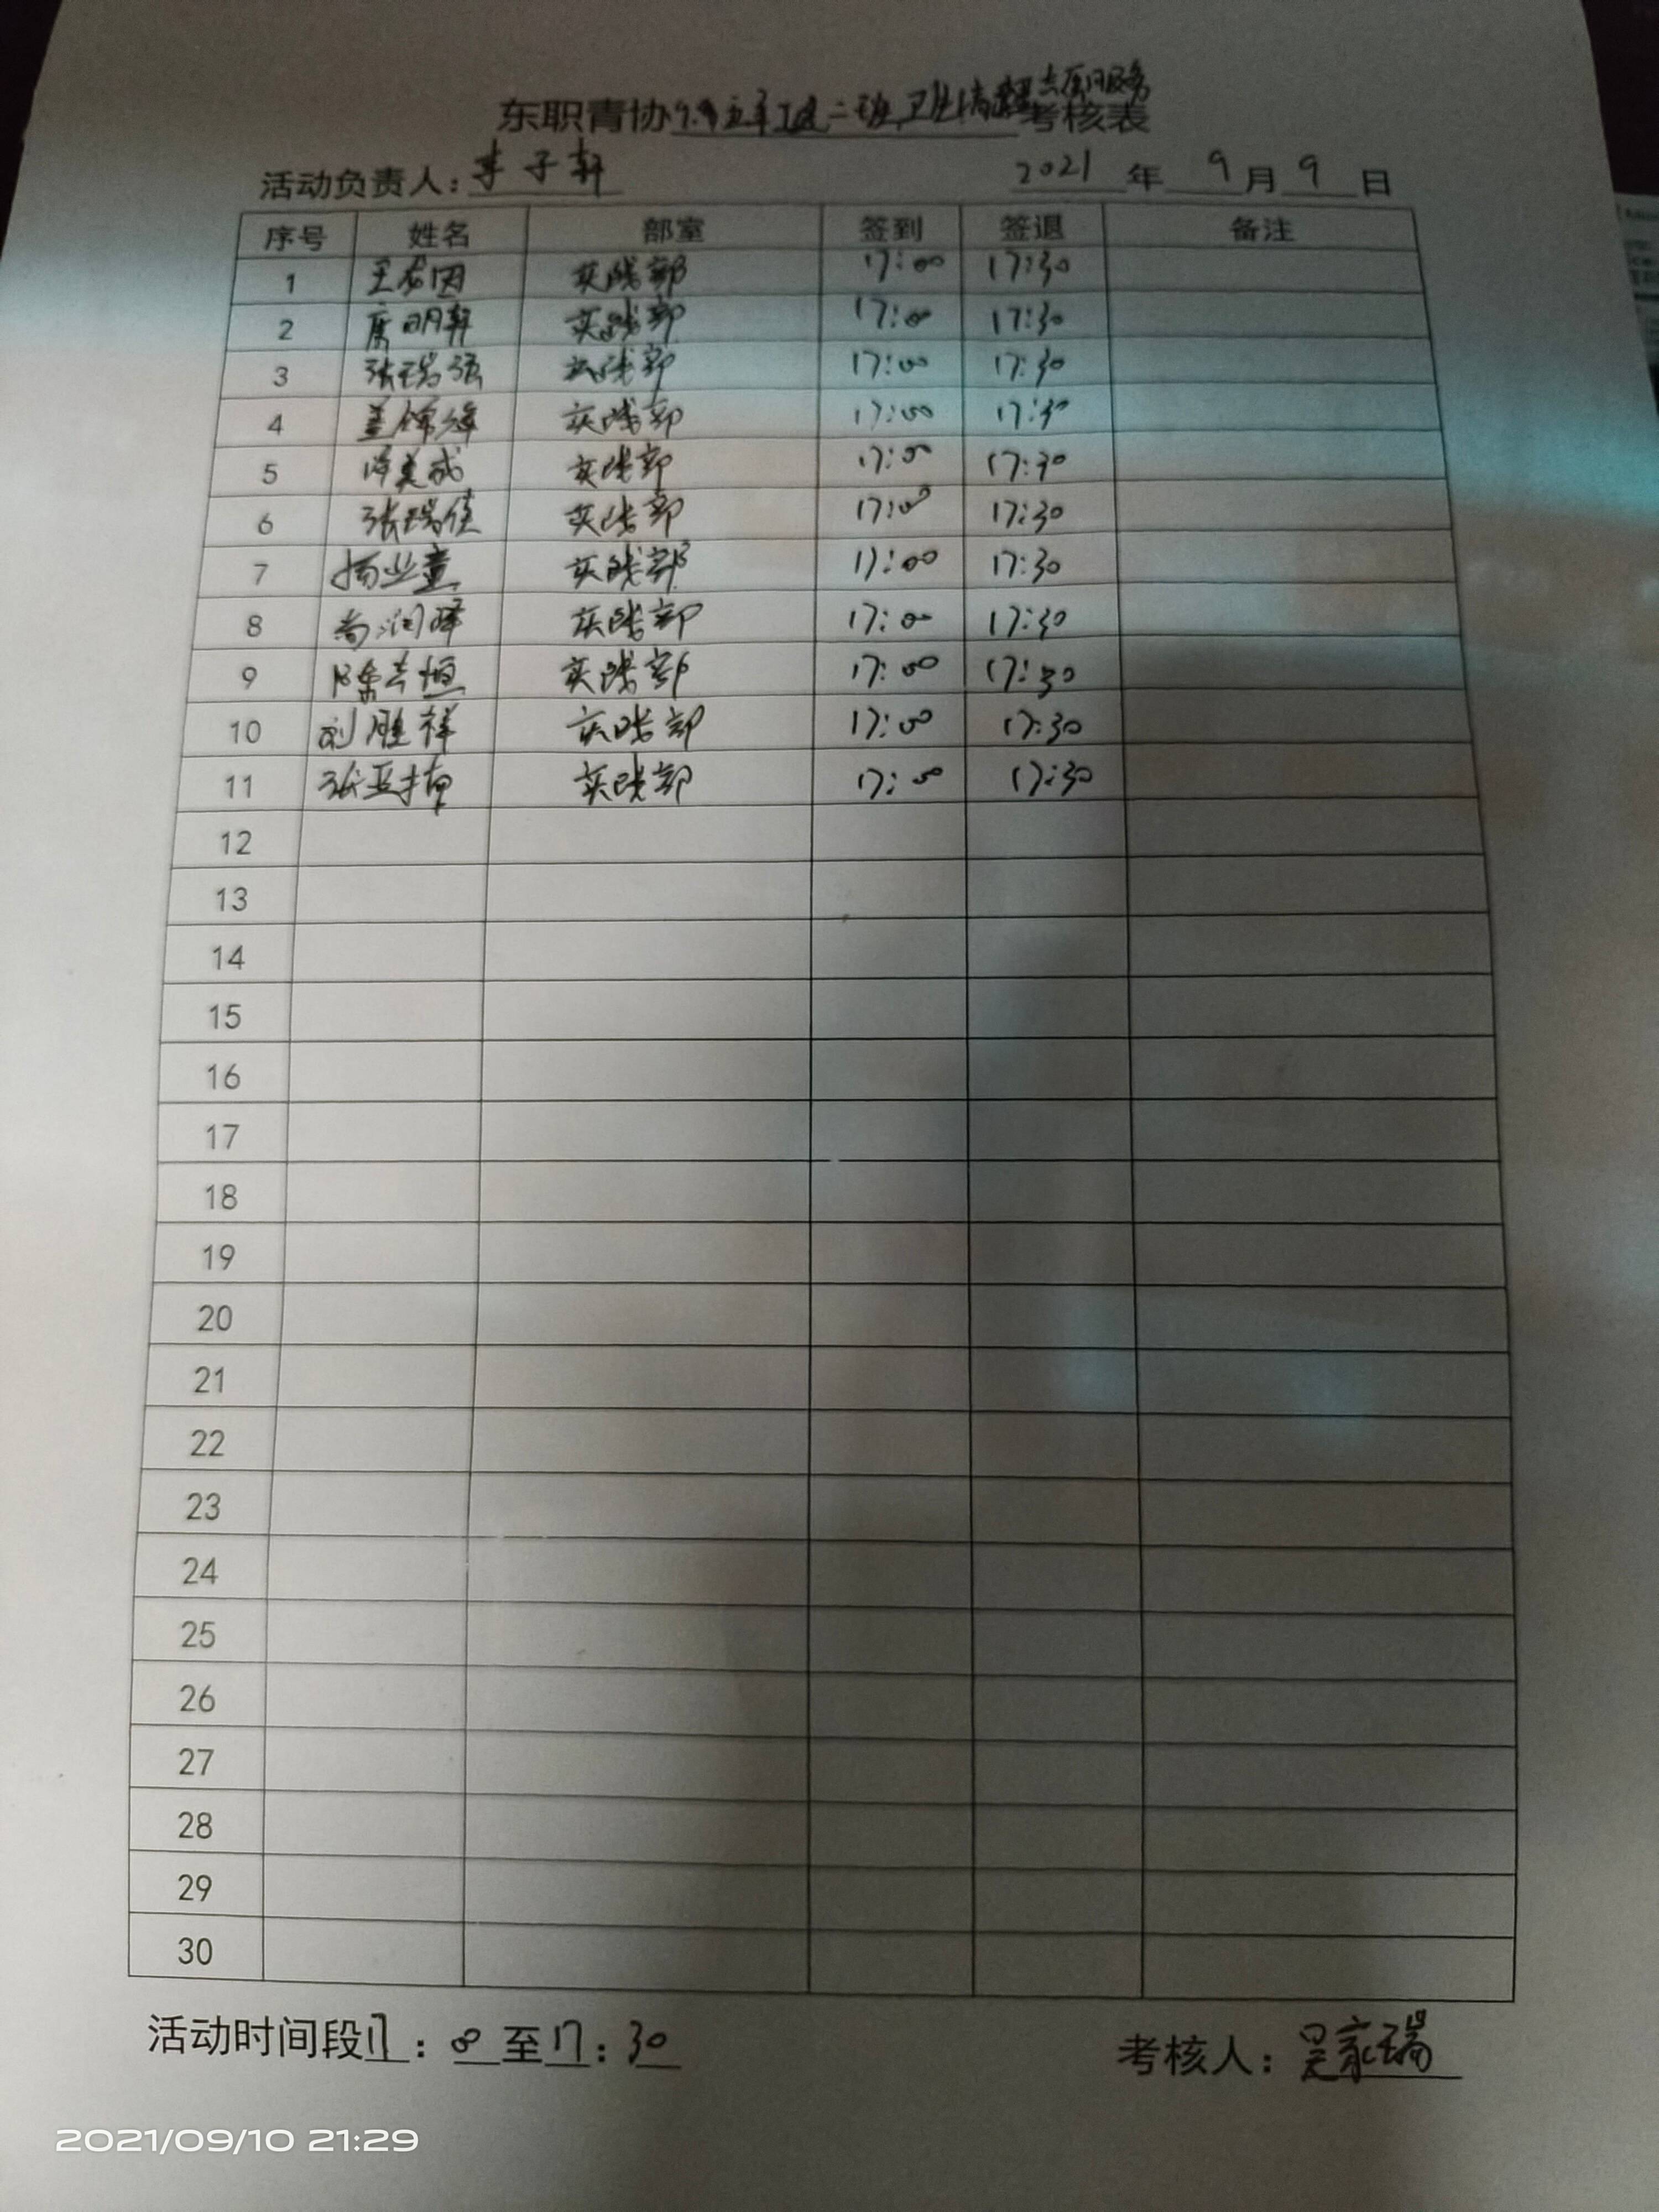 东职青协9.9五年工建二班卫生清理志愿服务考核表
活动负责人:李子轩 2021年9月9日
序号 姓名 部室 签到 签退 备注
1 实践部 17:00 17:30
2 唐明轩 实践部 17:00 17:30
3 张瑞强 实践部 17:00 17:30
4 实践部 17:00 17:30
5 实践部 17:00 17:30
6 张瑞 实践部 17:00 17:30
7 杨业童 实践部 17:00 17:30
8 尚润泽 实践部 17:00 17:30
9 陈 恒 实践部 17:00 17:30
10 刘胜祥 实践部 17:00 17:30
11 张亚楠 实践部 17:00 17:30
12
13
14
15
16
17
18
19
20
21
22
23
24
25
26
27
28
29
30
活动时间段17:00至17:30 考核人:吴家瑞
2021/09/10 21:29